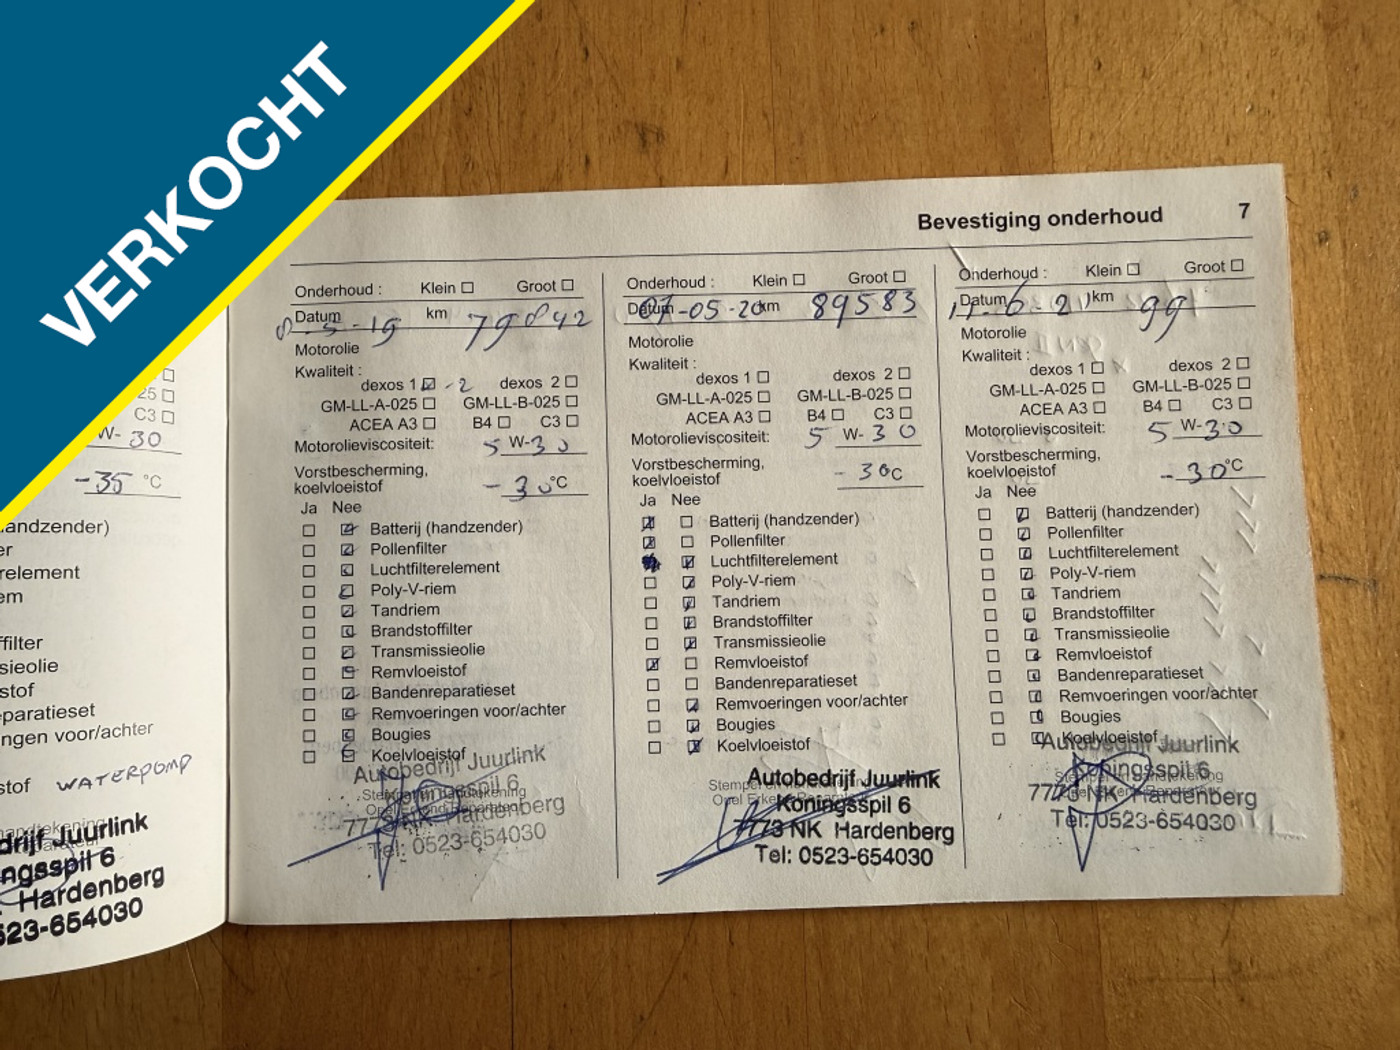 VERKOCHT
Bevestiging onderhoud 7
25
C3
W- 30
-35 °C
andzender)
er
relement
em
ffilter
sieolie
stof
paratieset
ngen voor/achter
stof WATERPOMP
drijf Juurlink
ngsspil 6
Hardenberg
523-654030
Onderhoud : Klein Groot
Datum km 79842
Motorolie
Kwaliteit :
dexos 1 - 2 dexos 2
GM-LL-A-025 GM-LL-B-025
ACEA A3 B4 C3
Motorolieviscositeit: 5 W-30
Vorstbescherming,
koelvloeistof - 30°C
Ja Nee
Batterij (handzender)
Pollenfilter
Luchtfilterelement
Poly-V-riem
Tandriem
Brandstoffilter
Transmissieolie
Remvloeistof
Bandenreparatieset
Remvoeringen voor/achter
Bougies
Koelvloeistof
Autobedrijf Juurlink
Koningsspil 6
7773 NK Hardenberg
Tel: 0523-654030
Onderhoud : Klein Groot
Datum 07-05-20 km 89583
Motorolie
Kwaliteit :
dexos 1 dexos 2
GM-LL-A-025 GM-LL-B-025
ACEA A3 B4 C3
Motorolieviscositeit: 5 W- 30
Vorstbescherming,
koelvloeistof - 30°C
Ja Nee
Batterij (handzender)
Pollenfilter
Luchtfilterelement
Poly-V-riem
Tandriem
Brandstoffilter
Transmissieolie
Remvloeistof
Bandenreparatieset
Remvoeringen voor/achter
Bougies
Koelvloeistof
Autobedrijf Juurlink
Koningsspil 6
7773 NK Hardenberg
Tel: 0523-654030
Onderhoud : Klein Groot
Datum km 99
Motorolie
Kwaliteit :
dexos 1 dexos 2
GM-LL-A-025 GM-LL-B-025
ACEA A3 B4 C3
Motorolieviscositeit: 5 W-30
Vorstbescherming,
koelvloeistof - 30°C
Ja Nee
Batterij (handzender)
Pollenfilter
Luchtfilterelement
Poly-V-riem
Tandriem
Brandstoffilter
Transmissieolie
Remvloeistof
Bandenreparatieset
Remvoeringen voor/achter
Bougies
Koelvloeistof
Autobedrijf Juurlink
Koningsspil 6
7773 NK Hardenberg
Tel: 0523-654030